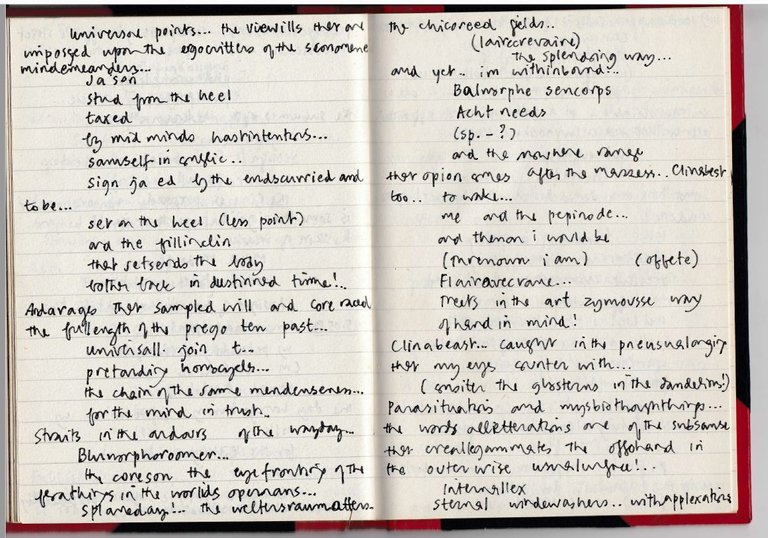 universal points... the viewills that are
imposged upon the egocritters of the
mindemeanders...
Ja son
stud from the heel
taxed
by mid minds hastintentions...
samself in conflic..
sign ja ed by the endscurried and
to be...
set on the heel (less point)
and the fillinclin
that setsends the body
bother back in destinned time!..
Andarages that sampled will and core raced
the fullength of the prego ten past...
universall join t...
pretandiry homocycles...
the chain of the same mendenseness...
for the mind in trust..
Straits in the ardours of the wayday...
Blumorphoroomer...
the coreson the eye frontiry of the
ferathings in the worlds opermans...
Splaneday!.. the weltersraumatters..
the chicoreed fields..
(lairecrevaire)
the splendoing way...
and yet.. im withinbound...
Balmorphe sencorps
Acht needs
(sp. - ?)
and the nowhere range
that opion comes after the mazzess.. Clinabeast
too.. to wake...
me and the pepinode...
and thenon i would be
(threnown i am) (offete)
Flairavecrane...
Treets in the art zymousse way
of hand in mind!
Clinabeast... caught in the pneusualonging
that my eyes counter with...
(consiter the ghosterns in the dandelims!)
Parasituations and mysbiothoughthings...
the words allitterations are of the subsanse
that creallegammates the offohand in
the outer wise usualungree!...
Internallex
sternal windewashers.. with applexations